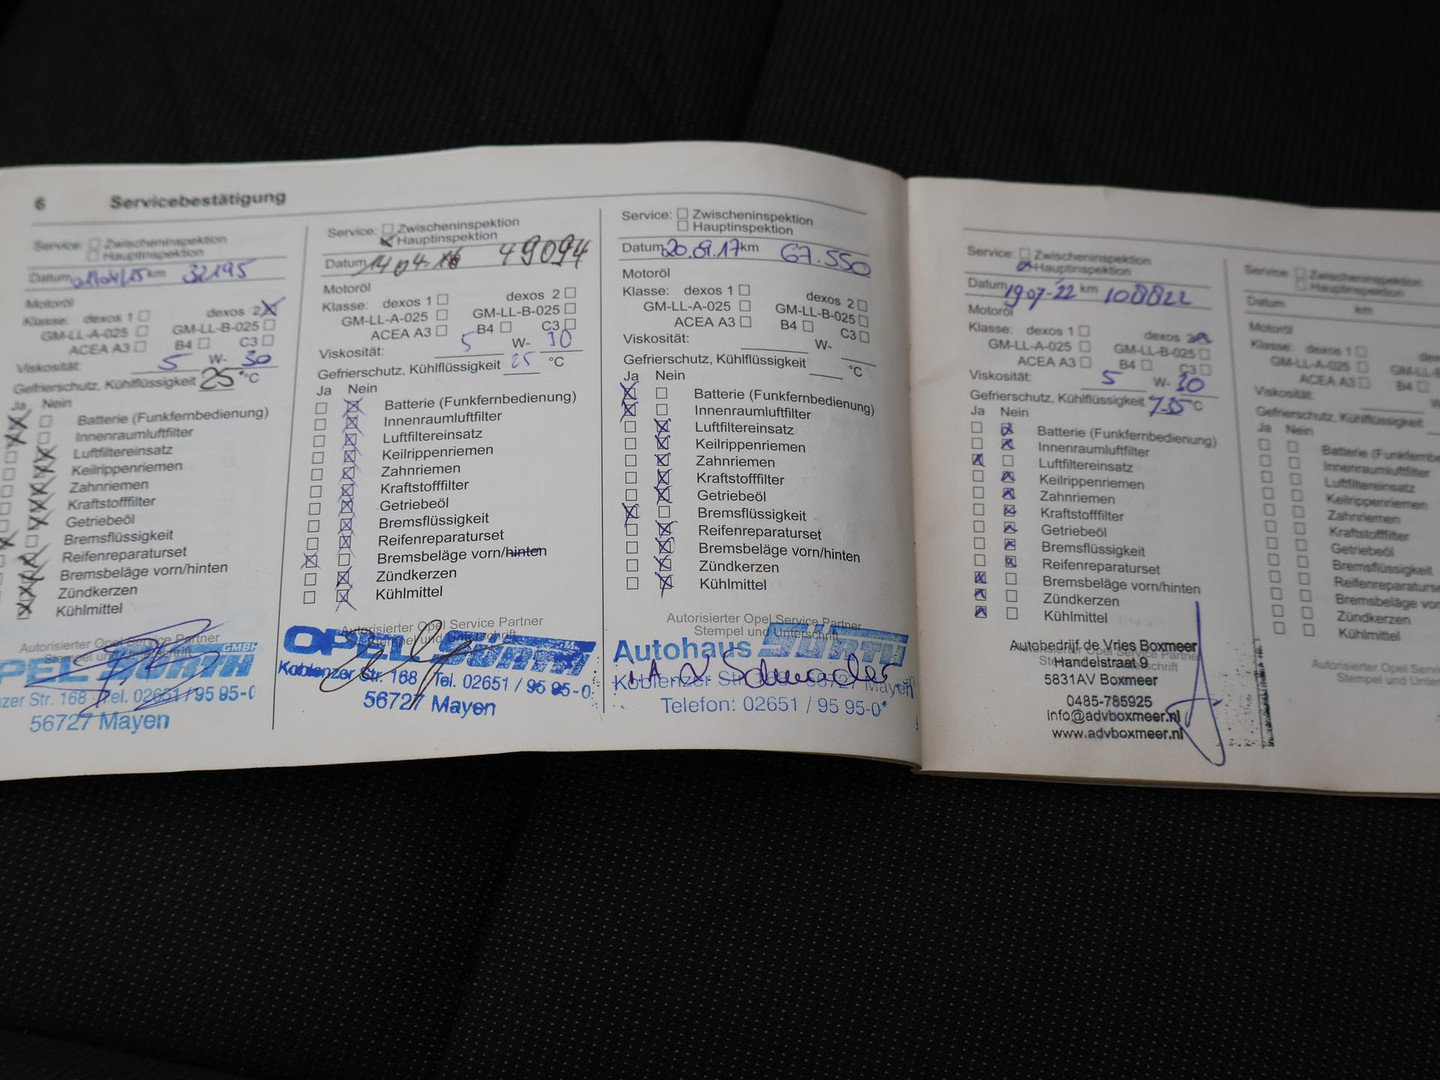 6 Servicebestätigung
Service: Zwischeninspektion
Hauptinspektion
Datum km 32195
Motoröl
Klasse: dexos 1 dexos 2
GM-LL-A-025 GM-LL-B-025
ACEA A3 B4 C3
Viskosität: 5 W- 30
Gefrierschutz, Kühlflüssigkeit 25 °C
Ja Nein
Batterie (Funkfernbedienung)
Innenraumluftfilter
Luftfiltereinsatz
Keilrippenriemen
Zahnriemen
Kraftstofffilter
Getriebeöl
Bremsflüssigkeit
Reifenreparaturset
Bremsbeläge vorn/hinten
Zündkerzen
Kühlmittel
Autorisierter Opel Service Partner
PEL GÜRTH GMBH
nzer Str. 168 · Tel. 02651 / 95 95-0
56727 Mayen
Service: Zwischeninspektion
Hauptinspektion
Datum 14 04. 16 49094
Motoröl
Klasse: dexos 1 dexos 2
GM-LL-A-025 GM-LL-B-025
ACEA A3 B4 C3
Viskosität: 5 W- 30
Gefrierschutz, Kühlflüssigkeit 25 °C
Ja Nein
Batterie (Funkfernbedienung)
Innenraumluftfilter
Luftfiltereinsatz
Keilrippenriemen
Zahnriemen
Kraftstofffilter
Getriebeöl
Bremsflüssigkeit
Reifenreparaturset
Bremsbeläge vorn/hinten
Zündkerzen
Kühlmittel
Autorisierter Opel Service Partner
Stempel und Unterschrift
OPEL GÜRTH
Koblenzer Str. 168 · Tel. 02651 / 95 95-0
56727 Mayen
Service: Zwischeninspektion
Hauptinspektion
Datum 20.09.17 km 67.550
Motoröl
Klasse: dexos 1 dexos 2
GM-LL-A-025 GM-LL-B-025
ACEA A3 B4 C3
Viskosität: W-
Gefrierschutz, Kühlflüssigkeit °C
Ja Nein
Batterie (Funkfernbedienung)
Innenraumluftfilter
Luftfiltereinsatz
Keilrippenriemen
Zahnriemen
Kraftstofffilter
Getriebeöl
Bremsflüssigkeit
Reifenreparaturset
Bremsbeläge vorn/hinten
Zündkerzen
Kühlmittel
Autorisierter Opel Service Partner
Stempel und Unterschrift
Autohaus GÜRTH
Koblenzer Str. 56727 Mayen
Telefon: 02651 / 95 95-0
Service: Zwischeninspektion
Hauptinspektion
Datum 19-07-22 km 108822
Motoröl
Klasse: dexos 1 dexos 2
GM-LL-A-025 GM-LL-B-025
ACEA A3 B4 C3
Viskosität: 5 W- 30
Gefrierschutz, Kühlflüssigkeit °C
Ja Nein
Batterie (Funkfernbedienung)
Innenraumluftfilter
Luftfiltereinsatz
Keilrippenriemen
Zahnriemen
Kraftstofffilter
Getriebeöl
Bremsflüssigkeit
Reifenreparaturset
Bremsbeläge vorn/hinten
Zündkerzen
Kühlmittel
Autobedrijf de Vries Boxmeer
Handelstraat 9
5831AV Boxmeer
0485-785925
info@advboxmeer.nl
www.advboxmeer.nl
Service: Zwischeninspektion
Hauptinspektion
Datum km
Motoröl
Klasse: dexos 1
GM-LL-A-025
ACEA A3 B4
Viskosität:
Gefrierschutz, Kühlflüssigkeit
Ja Nein
Batterie
Innenraumluftfilter
Luftfiltereinsatz
Keilrippenriemen
Zahnriemen
Kraftstofffilter
Getriebeöl
Bremsflüssigkeit
Zündkerzen
Kühlmittel
Autorisierter Opel
Stempel und